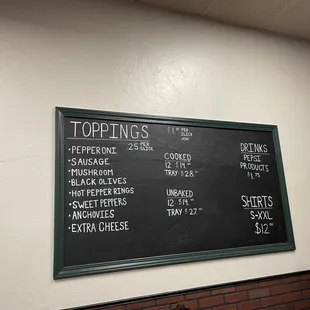 TOPPINGS
.25 PER SLICE
• PEPPERONI
• SAUSAGE
• MUSHROOM
• BLACK OLIVES
• HOT PEPPER RINGS
• SWEET PEPPERS
• ANCHOVIES
• EXTRA CHEESE
PER SLICE
COOKED
12 $14.
TRAY $28.
UNBAKED
12 $14.
TRAY $27.
DRINKS
PEPSI
PRODUCTS
$1.75
SHIRTS
S-XXL
$12.